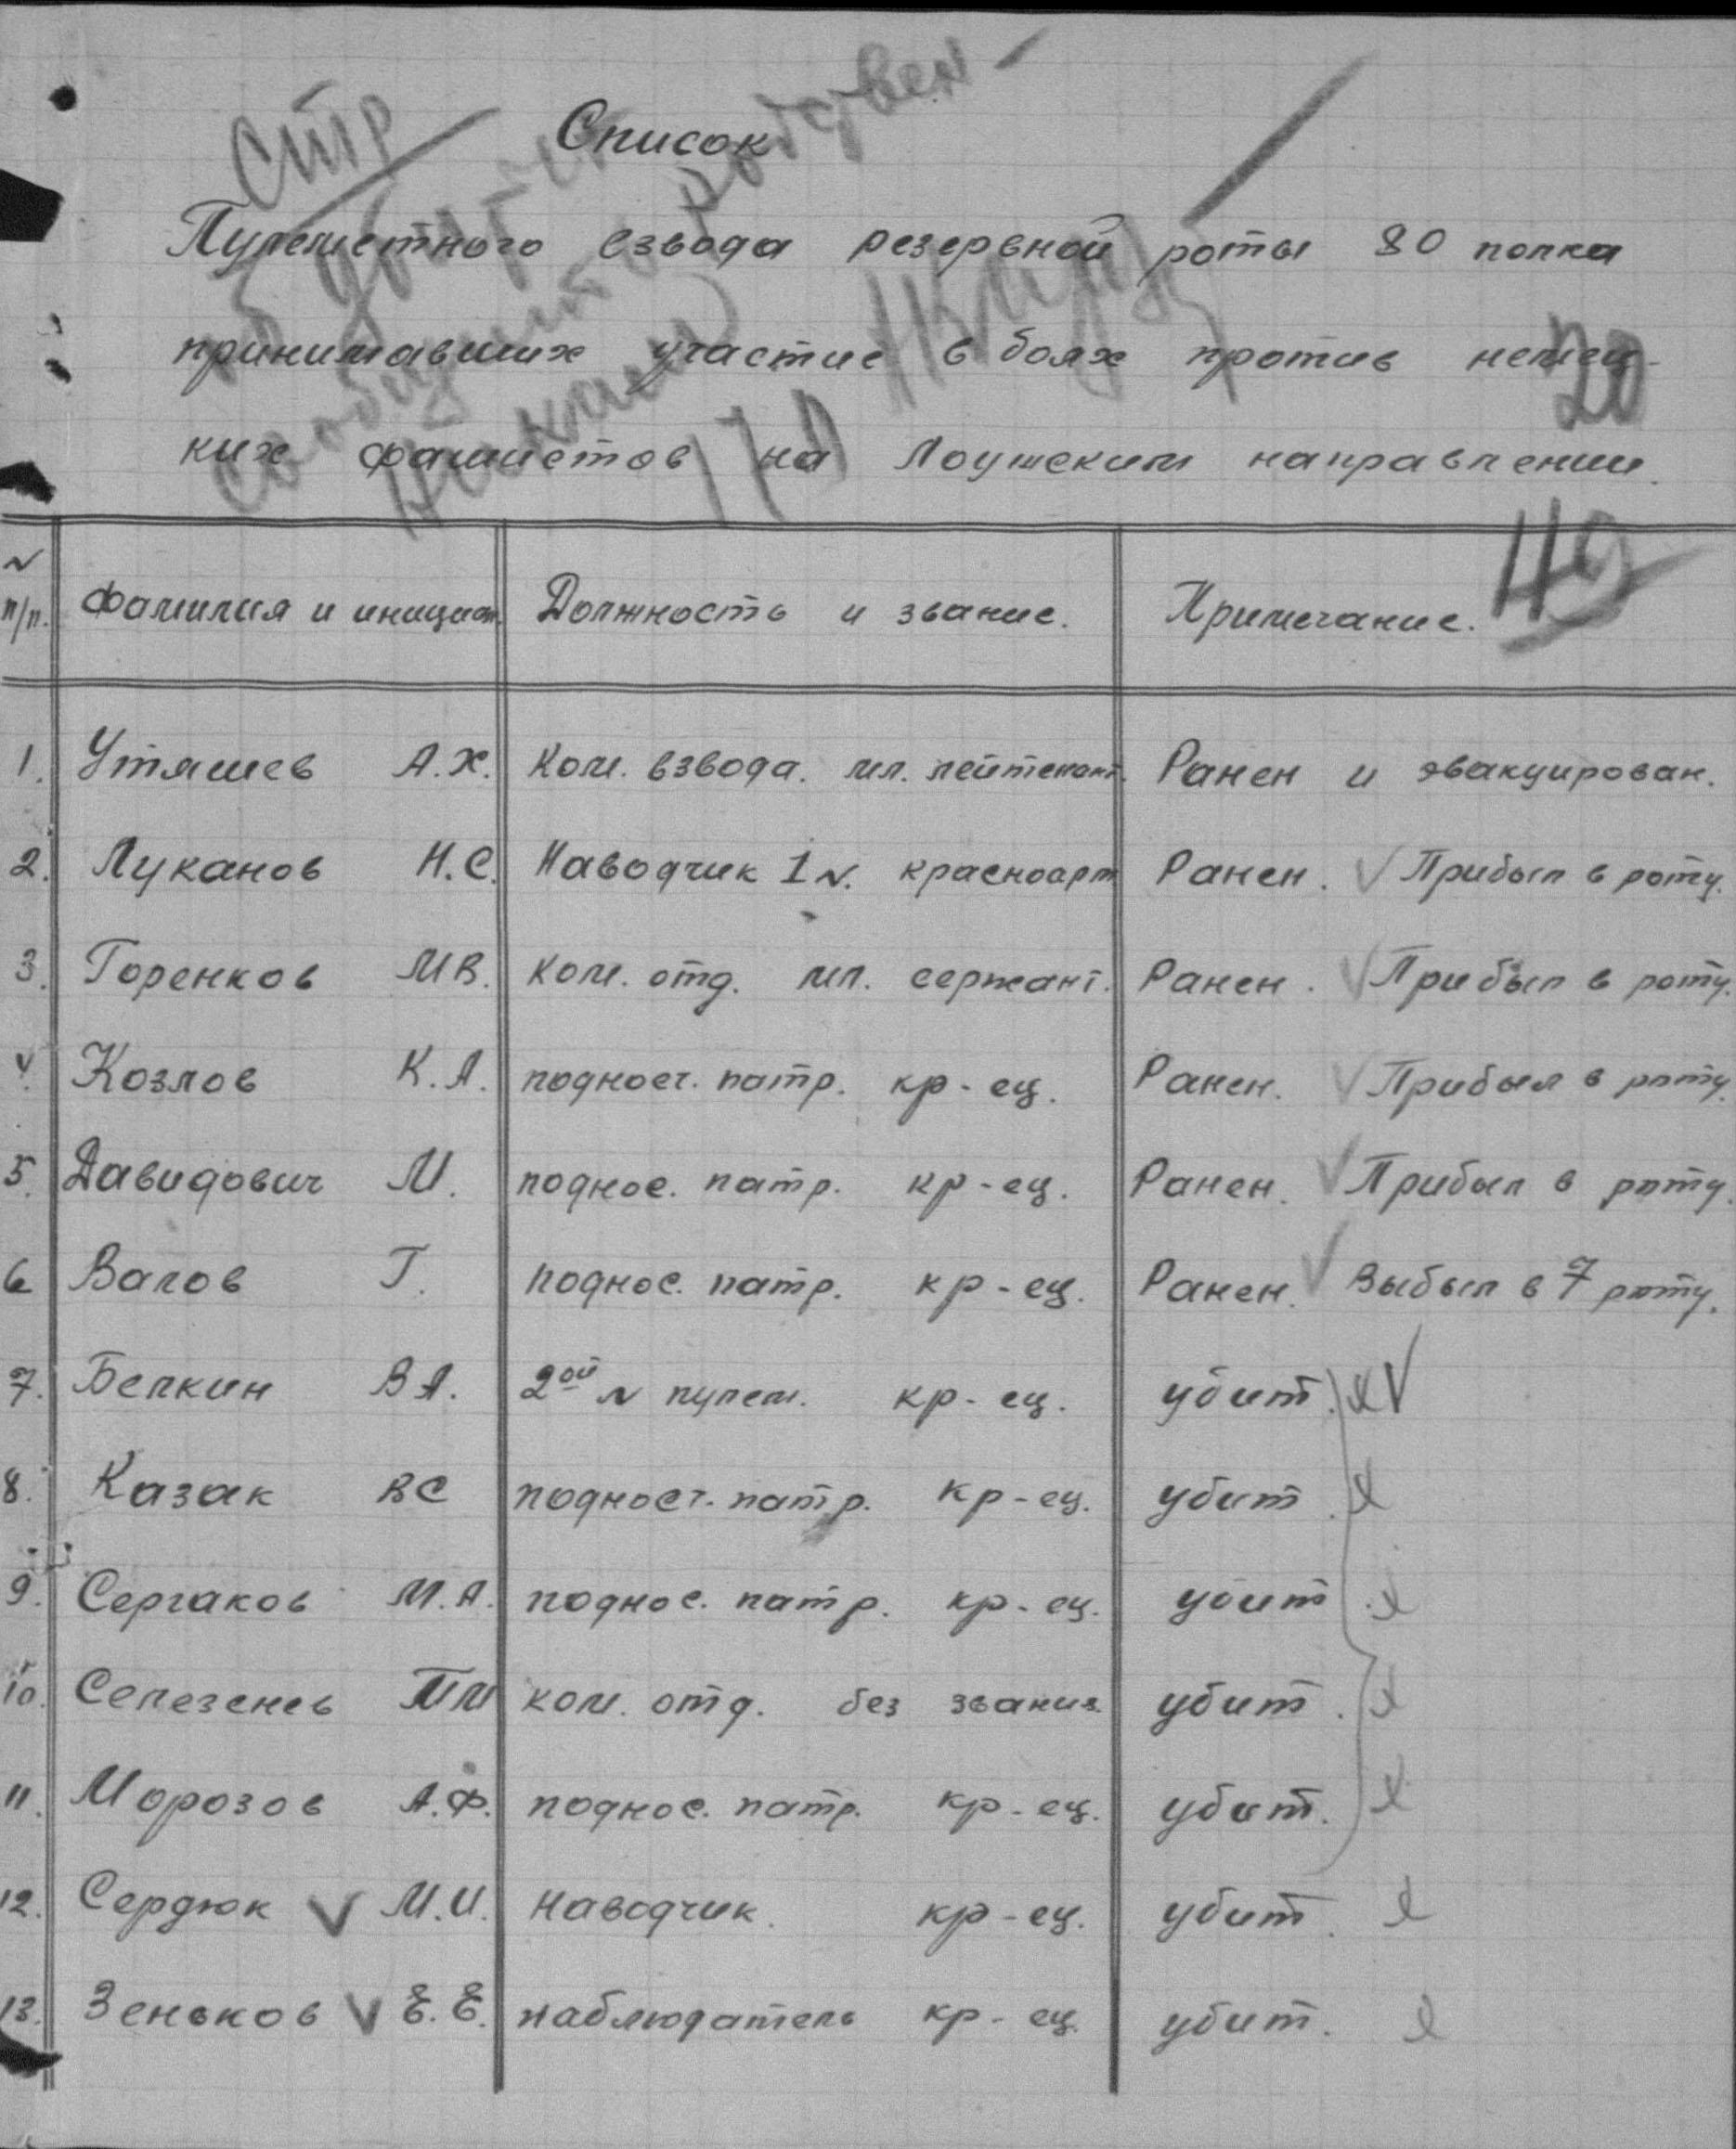 Список
Пулеметного взвода резервной роты 80 полка
принимавших участие в боях против немец-
ких фашистов на Лоушским направлении.
N п/п. Фамилия и инициал. Должность и звание. Примечание.
1. Утяшев А.Х. Ком. взвода. мл. лейтенант. Ранен и эвакуирован.
2. Луканов Н.С. Наводчик 1 N. красноарм Ранен. Прибыл в роту.
3. Горенков М В. Ком. отд. мл. сержант. Ранен. Прибыл в роту.
4. Козлов К.А. подносч. патр. кр-ец. Ранен. Прибыл в роту.
5. Давидович М. поднос. патр. кр-ец. Ранен. Прибыл в роту.
6 Валов Г. поднос. патр. кр-ец. Ранен. Выбыл в 7 роту.
7. Белкин В А. 2ой N пулем. кр-ец. убит.
8. Казак В С подносч. патр. кр-ец. убит.
9. Сергаков М.А. поднос. патр. кр-ец. убит.
10. Селезенев П М ком. отд. без звания. убит.
11. Морозов А.Ф. поднос. патр. кр-ец. убит.
12. Сердюк М.И. Наводчик. кр-ец. убит.
13. Зеньков Е.Е. наблюдатель кр-ец. убит.
стр
20